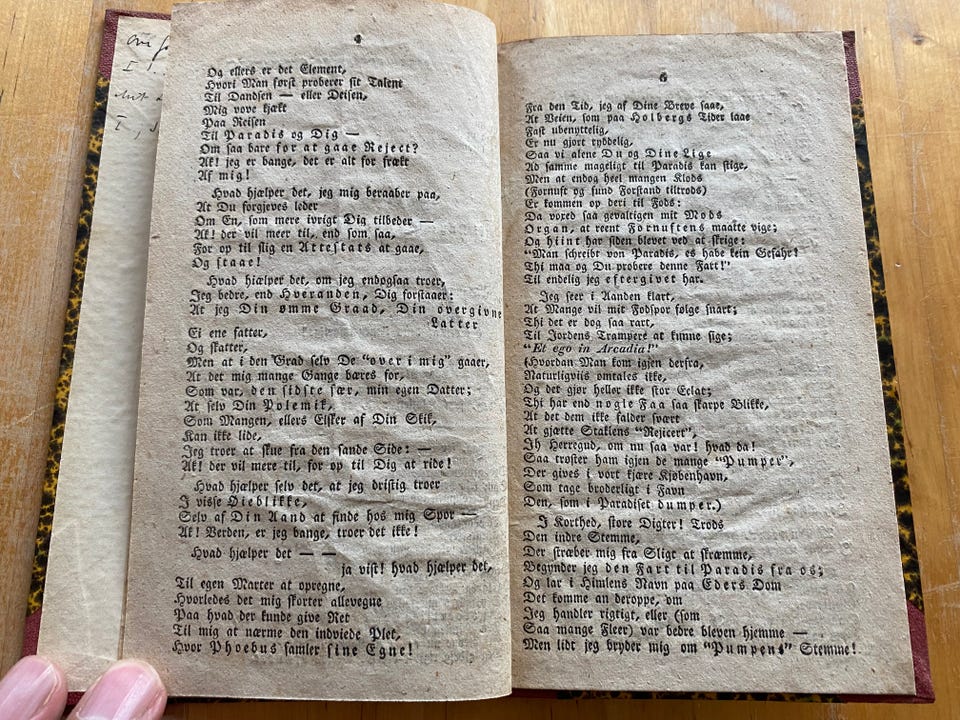 4
Og ellers er det Element,
Hvori Man først proberer sit Talent
Til Dandsen — eller Deisen,
Mig vove kjækt
Paa Reisen
Til Paradis og Dig —
Om saa bare for at gaae Reject?
Ak! jeg er bange, det er alt for frækt
Af mig!
Hvad hjælper det, jeg mig beraaber paa,
At Du forgjeves leder
Om En, som mere ivrigt Dig tilbeder —
Ak! der vil meer til, end som saa,
For op til slig en Attestats at gaae,
Og staae!
Hvad hjælper det, om jeg endogsaa troer,
Jeg bedre, end Hveranden, Dig forstaaer:
At jeg Din ømme Graad, Din overgivne
Latter
Ei ene fatter,
Og skatter,
Men at i den Grad selv De "over i mig" gaaer,
At det mig mange Gange bæres for,
Som var, den sidste fær, min egen Datter;
At selv Din Polemik,
Som Mangen, ellers Elsker af Din Skik,
Kan ikke lide,
Jeg troer at skue fra den sande Side: —
Ak! der vil mere til, for op til Dig at ride!
Hvad hjælper selv det, at jeg dristig troer
I visse Øieblikke,
Selv af Din Aand at finde hos mig Spor —
Ak! Verden, er jeg bange, troer det ikke!
Hvad hjælper det — —
ja vist! hvad hjælper det,
Til egen Marter at opregne,
Hvorledes det mig skorter allevegne
Paa hvad der kunde give Ret
Til mig at nærme den indviede Plet,
Hvor Phoebus samler sine Egne!
5
Fra den Tid, jeg af Dine Breve saae,
At Veien, som paa Holbergs Tider laae
Fast ubenyttelig,
Er nu gjort ryddelig,
Saa vi alene Du og Dine Lige
Ad samme mageligt til Paradis kan stige,
Men at endog heel mangen Klods
(Fornuft og sund Forstand tiltrods)
Er kommen op deri til Fods:
Da vored saa gevaltigen mit Mods
Organ, at reent Fornuftens maatte vige;
Og hiint har siden blevet ved at skrige:
"Man schreibt von Paradis, es habe kein Gefahr!
Thi maa og Du probere denne Fart!"
Til endelig jeg eftergivet har.
Jeg seer i Aanden klart,
At Mange vil mit Fodspor følge snart;
Thi det er dog saa rart,
Til Jordens Trampere at kunne sige;
"Et ego in Arcadia!"
(Hvordan Man kom igjen derfra,
Naturligviis omtales ikke,
Og det gjør heller ikke stor Eclat;
Thi har end nogle Faa saa skarpe Blikke,
At det dem ikke falder svært
At gjætte Staklens "Rejicert",
Ih Herregud, om nu saa var! hvad da!
Saa trøster ham igjen de mange "Pumper",
Der gives i vort kjære Kjøbenhavn,
Som tage broderligt i Favn
Den, som i Paradiset dumper.)
I Korthed, store Digter! Trods
Den indre Stemme,
Der stræber mig fra Sligt at skræmme,
Begynder jeg den Fart til Paradis fra os;
Og lar i Himlens Navn paa Eders Dom
Det komme an deroppe, om
Jeg handler rigtigt, eller (som
Saa mange Fleer) var bedre bleven hjemme —
Men lidt jeg bryder mig om "Pumpens" Stemme!